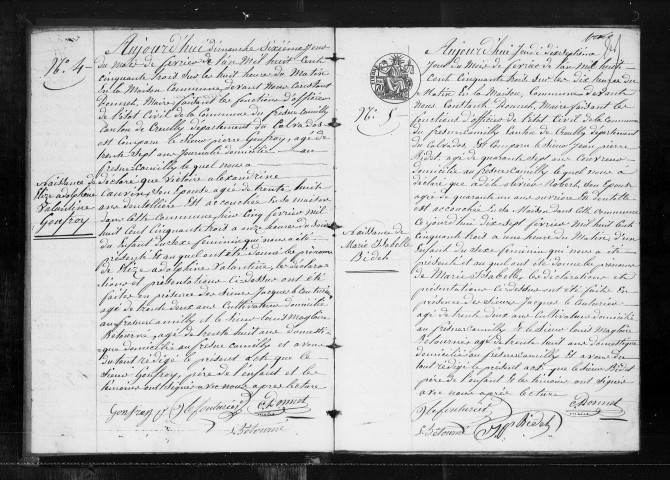 N.º 4
Naissance de
Elize adolphine
Valantine
Gonfroy
Aujourd'hui dimanche Sixième jour
du mois de février de l'an Mil huit Cent
Cinquante trois sur les huit heures du Matin
En la Maison Commune devant Nous Constant
Donnet, Maire faisant les fonctions d'officier
de l'état Civil de la Commune du fresne Camilly
Canton de Creully Département du Calvados
Est Comparu le Sieur pierre Gonfroy, agé de
trente Sept ans Journalier domicilié au
fresne Camilly lequel nous a
déclaré que Victoire alexandrine
Cauvin, son Epouse agée de trente huit
ans dentellière Est accouchée En sa maison
dans cette Commune hier Cinq février mil
huit Cent Cinquante trois a onze heures du Soir
du Enfant du Sexe féminin qui nous a été
présenté Et auquel ont été donné les prénoms
de Elize adolphine Valantine, les déclara-
tions et présentations ci-dessus ont été
faites En présence des Sieurs Jacques le Couturier
agé de trente deux ans Cultivateur domicilié
au fresne Camilly et le Sieur louis Magloire
Bétourné, agé de trente huit ans domesti-
que domicilié au fresne Camilly et avons
du tout rédigé le présent acte que le
Sieur Gonfroy, père de l'enfant et les
témoins ont signé avec nous après lecture
Gonfroy
C. Donnet
L Bétourné
N.º 5
Naissance de
Marie Isabelle
Bidet
Aujourd'hui Jeudi dix Septième
Jour du Mois de février de l'an Mil huit
Cent Cinquante trois sur les dix heures du
Matin En la Maison Commune devant
Nous Constant Donnet, Maire faisant les
fonctions d'officier de l'état Civil de la Commune
du fresne Camilly Canton de Creully département
du Calvados Est Comparu le Sieur Jean pierre
Bidet, agé de quarante Sept ans Couvreur
domicilié au fresne Camilly lequel nous a
déclaré que adelaide Robert Son Epouse
agée de quarante un ans ouvrière En dentelle
Est accouchée En sa Maison dans cette Commune
Cejourd'hui dix Sept février Mil huit Cent
Cinquante trois a une heure du Matin d'un
Enfant du Sexe féminin qui nous a été
présenté et auquel ont été donné les prénoms
de Marie Isabelle les déclarations et
présentations Ci dessus ont été faites En
présence des Sieurs Jacques le Couturier
agé de trente deux ans Cultivateur domicilié
au fresne Camilly et le Sieur louis Magloire
Bétourné agé de trente huit ans domestique
domicilié au fresne Camilly Et avons du
tout rédigé le présent acte que le Sieur Bidet
père de l'enfant et les témoins ont signé
avec nous après lecture
C. Donnet
L Bétourné
Bidet